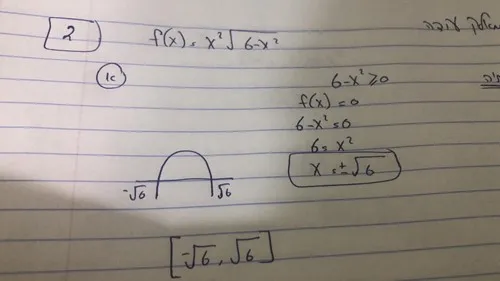 2
f(x) = x²√6-x²
א
6-x²≥0
f(x)=0
6-x²=0
6=x²
x=±√6
-√6 √6
[-√6, √6]